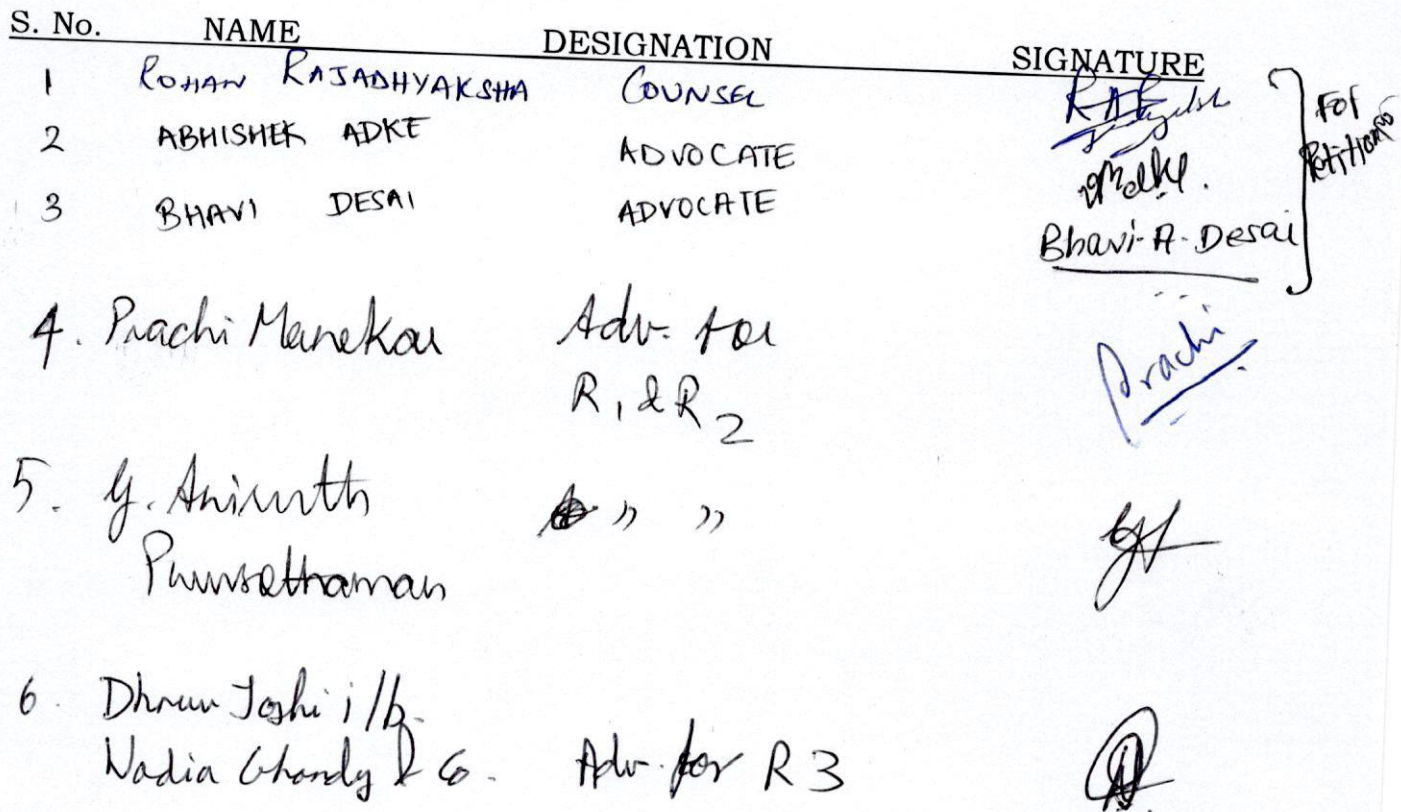 S. No. NAME DESIGNATION SIGNATURE
1 ROHAN RAJADHYAKSHA COUNSEL
2 ABHISHEK ADKE ADVOCATE
3 BHAVI DESAI ADVOCATE Bhavi-A-Desai
For Petitioners
4. Prachi Manekar Adv. for Prachi
R1 & R2
5. G. Anirudh " "
Purusothaman
6. Dhruv Joshi i/b.
Nadia Ghandy & Co. Adv. for R3